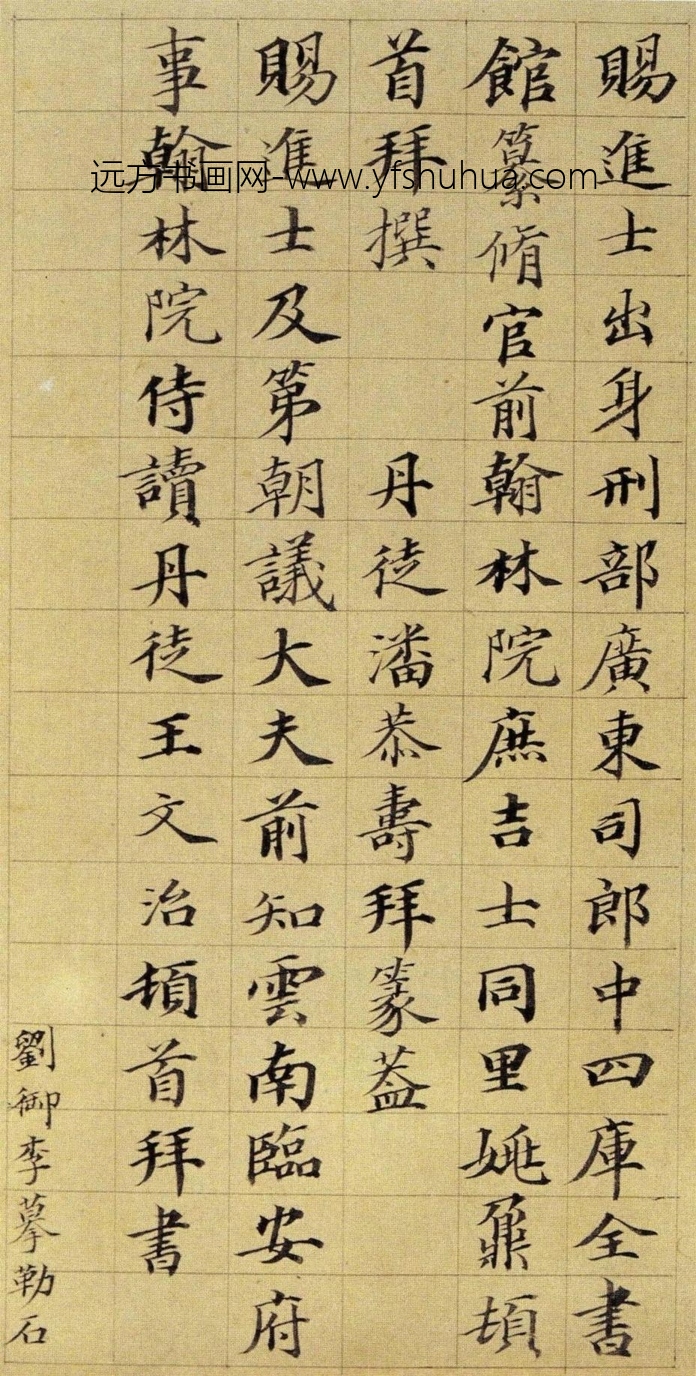 賜進士出身刑部廣東司郎中四庫全書
館纂脩官前翰林院庶吉士同里姚鼐頓
首拜撰 丹徒潘恭壽拜篆蓋
賜進士及第朝議大夫前知雲南臨安府
事翰林院侍讀丹徒王文治頓首拜書
劉御李摹勒石
远方书画网-www.yfshuhua.com